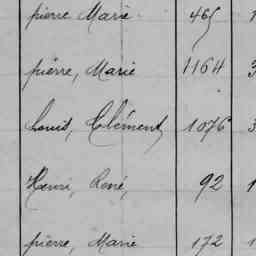 pierre Marie 465 1
pierre, Marie 1164 3
Louis, Clément, 1076 3
Henri, René, 92 1
pierre, Marie 172 1